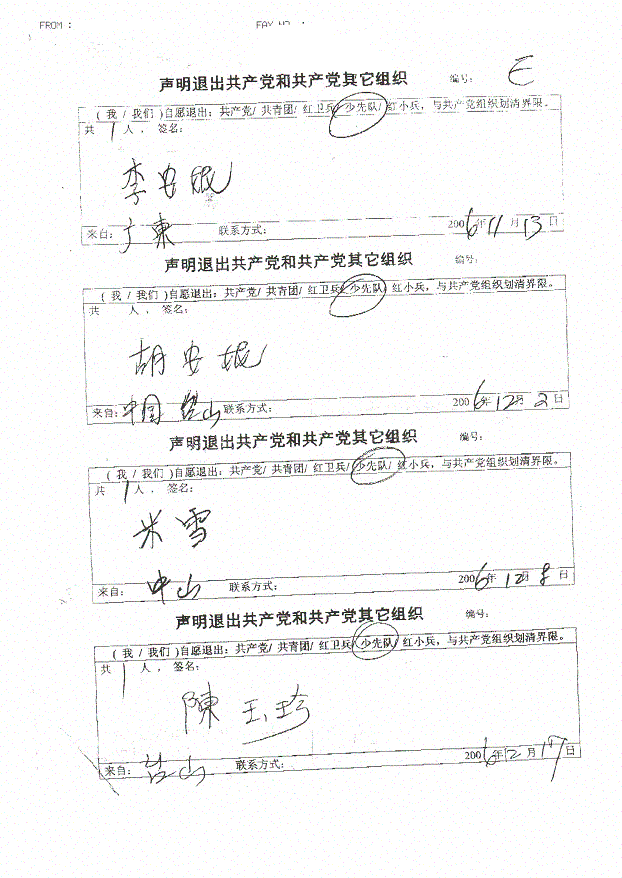 FROM :
FAX NO. :
声明退出共产党和共产党其它组织 编号: E
( 我 / 我们 )自愿退出: 共产党/ 共青团/ 红卫兵/ 少先队/ 红小兵, 与共产党组织划清界限。
共 1 人 , 签名:
李安
来自: 广東 联系方式: 2006年11月13日
声明退出共产党和共产党其它组织 编号:
( 我 / 我们 )自愿退出: 共产党/ 共青团/ 红卫兵/ 少先队/ 红小兵, 与共产党组织划清界限。
共 人 , 签名:
胡安
来自: 中国 山 联系方式: 2006年12月2日
声明退出共产党和共产党其它组织 编号:
( 我 / 我们 )自愿退出: 共产党/ 共青团/ 红卫兵/ 少先队/ 红小兵, 与共产党组织划清界限。
共 1 人 , 签名:
米雪
来自: 中山 联系方式: 2006年12月8日
声明退出共产党和共产党其它组织 编号:
( 我 / 我们 )自愿退出: 共产党/ 共青团/ 红卫兵/ 少先队/ 红小兵, 与共产党组织划清界限。
共 1 人 , 签名:
陳玉珍
来自: 山 联系方式: 2006年12月17日